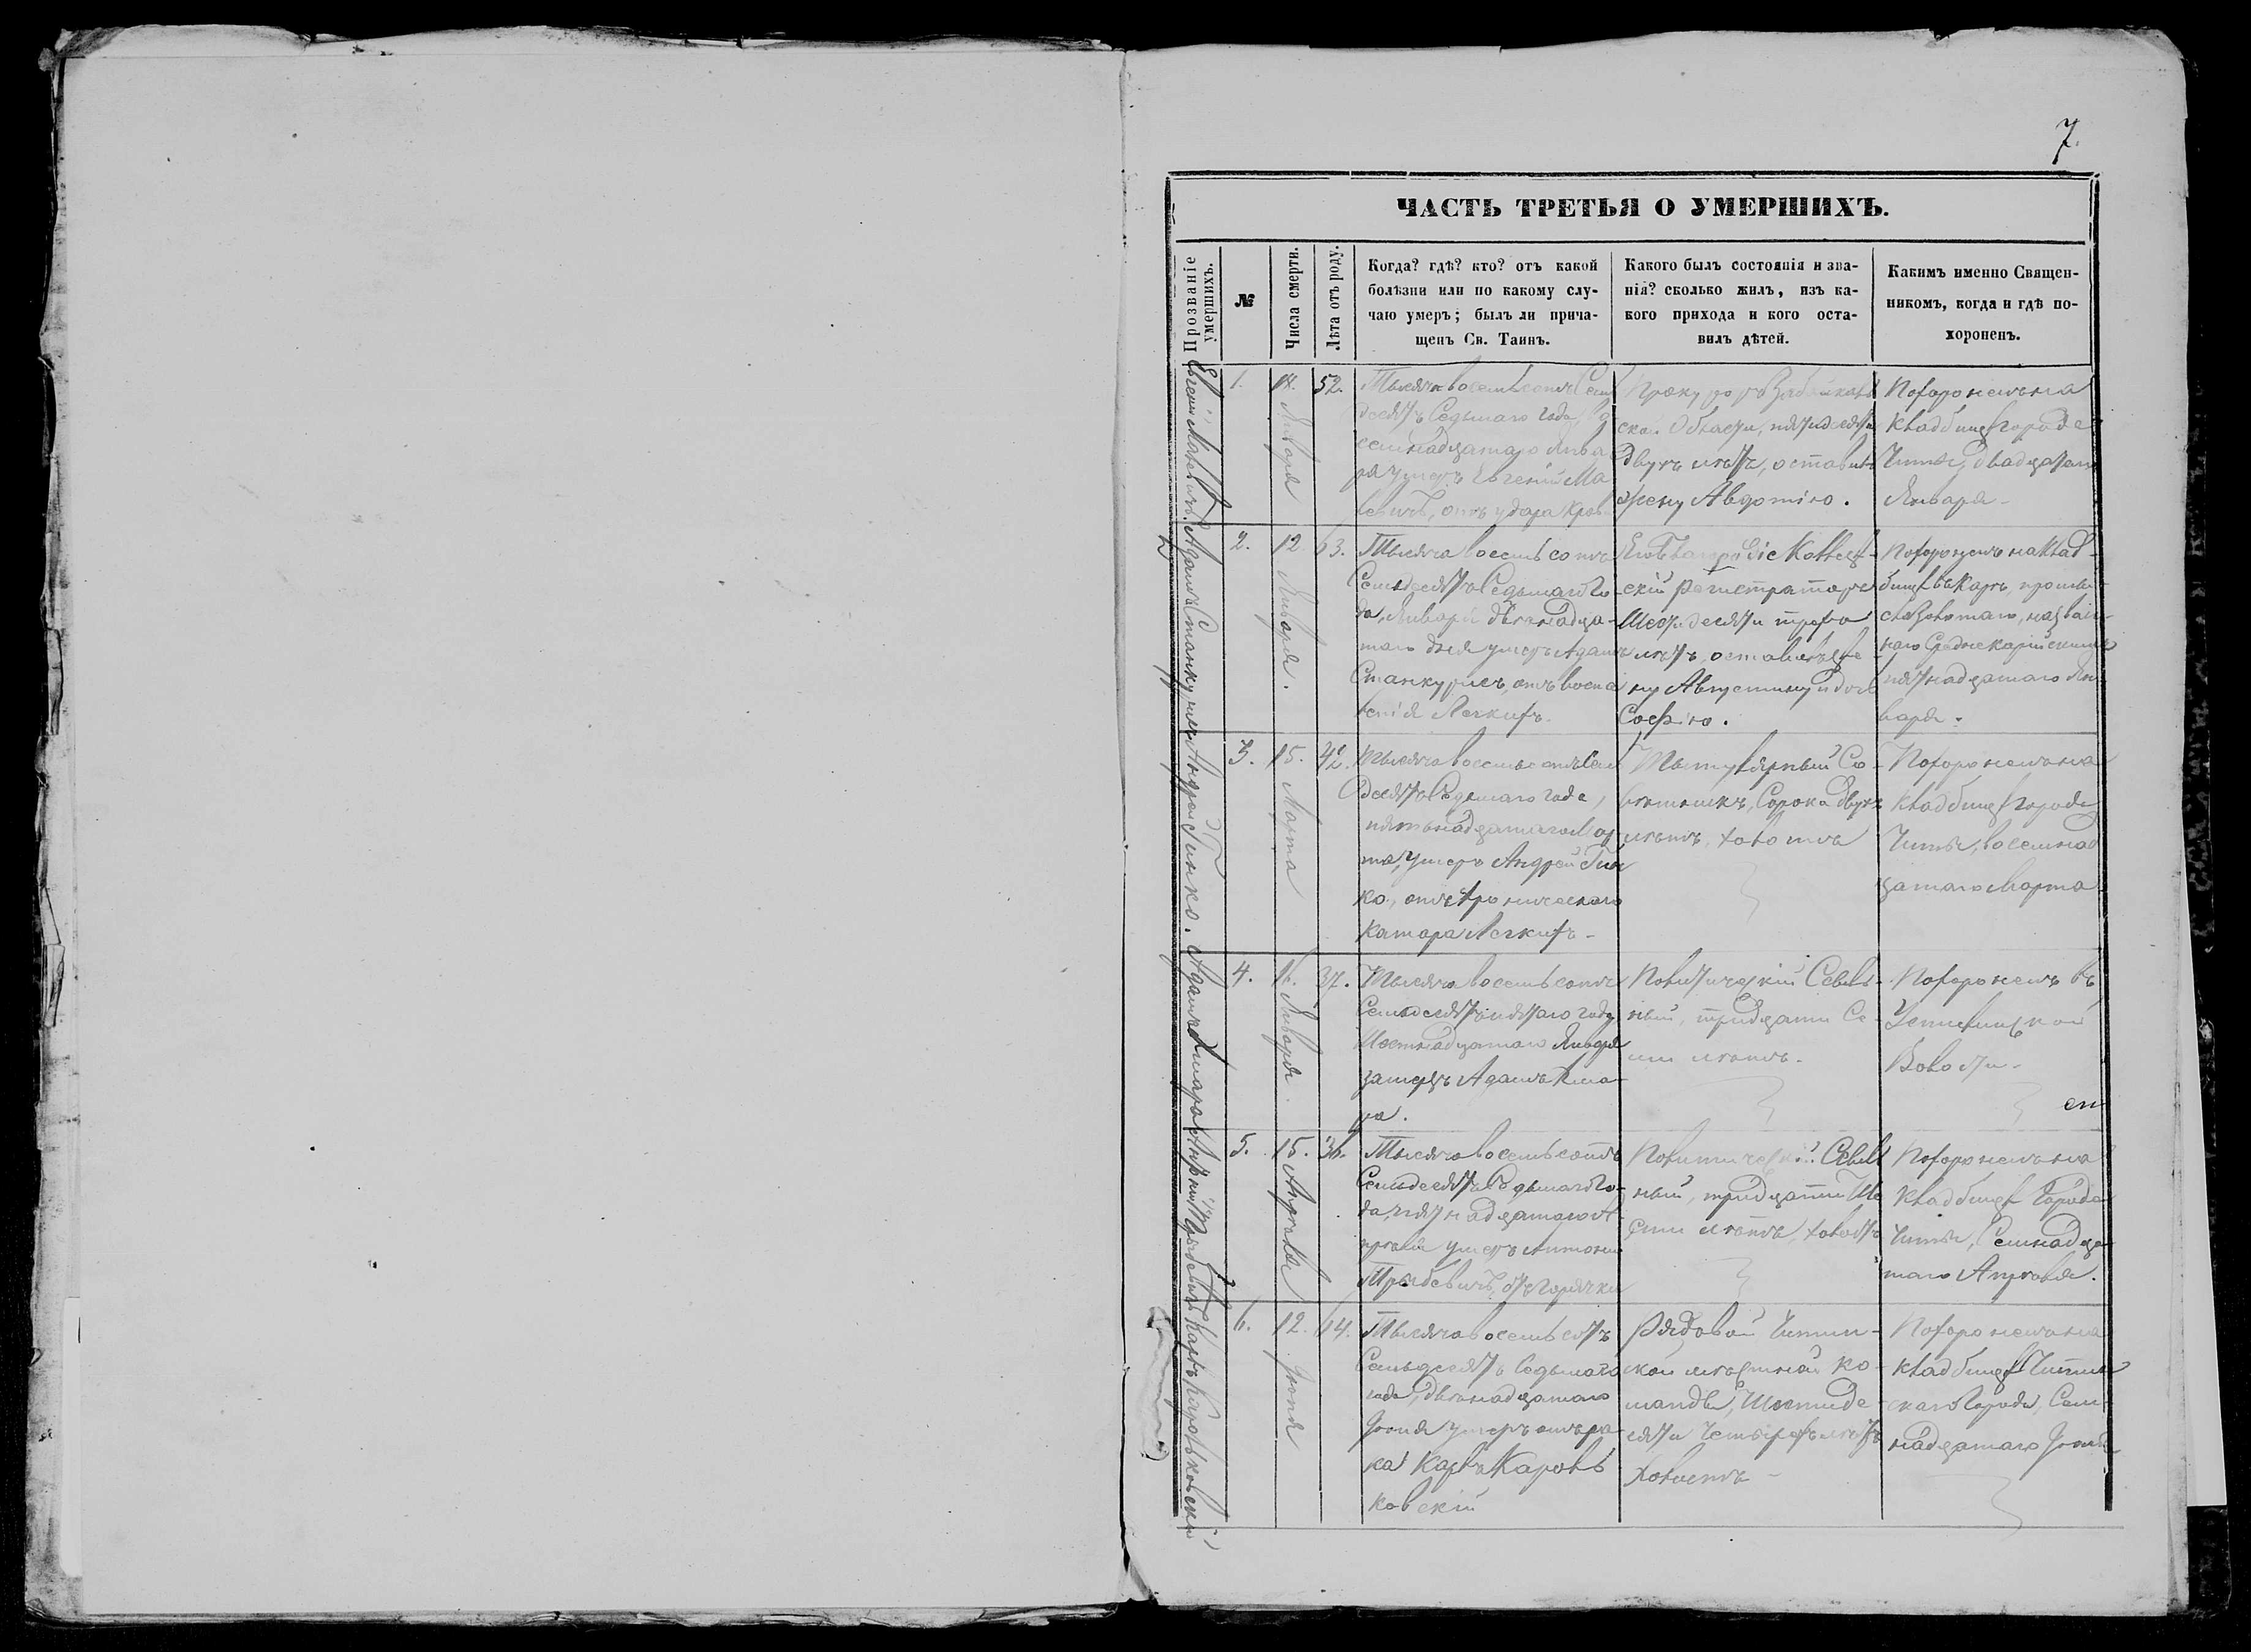 7.
ЧАСТЬ ТРЕТЬЯ О УМЕРШИХЪ.
Прозваніе
умершихъ.
№
Числа смерти.
Лѣта отъ роду.
Когда? гдѣ? кто? отъ какой
болѣзни или по какому слу-
чаю умеръ; былъ ли прича-
щенъ Св. Таинъ.
Какого былъ состоянія и зва-
нія? сколько жилъ, изъ ка-
кого прихода и кого оста-
вилъ дѣтей.
Какимъ именно Священ-
никомъ, когда и гдѣ по-
хороненъ.
Евгеній
1.
Января
52.
Тысяча восемьсотъ Семь
десятъ Седьмаго года,
семнадцатаго Янва
ря умеръ Евгеній Ма
левичъ, отъ удара
Области, пятидесяти
двухъ лѣтъ, оставилъ
жену Авдотію.
Похороненъ на
кладбищѣ города
Читы, двадцатаго
Января
Адамъ Станкунасъ
2.
12. Января.
63.
Тысяча восемьсотъ
Семьдесятъ Седьмаго Го
да, Января двѣнадца-
таго дня умеръ Адамъ
отъ воспа
ленія Легкихъ.
Коллеж-
скій Регистраторъ
Шестидесяти трехъ
лѣтъ, оставилъ же
ну Августину и дочь
Софію.
Похороненъ на клад-
бищѣ въ Карѣ, промы-
сла Золотаго, назван-
наго Среднекарійскимъ
пятнадцатаго Ян
варя.
Андрей Гинко.
3.
15. Марта
42.
Тысяча восемьсотъ Сем
десятъ Седьмаго года,
пятьнадцатаго Мар
та, умеръ Андрей Гин
ко, отъ хроническаго
катара Легкихъ-
Титулярный Со-
вѣтникъ, Сорока двухъ
лѣтъ, холостъ
Похороненъ на
кладбищѣ города
Читы, восемнад
цатаго Марта
Адамъ Кмара
4.
16. Января.
37.
Тысяча восемьсотъ
Семьдесятъ пятаго года
Шестнадцатаго Января
замерзъ Адамъ Кма-
ра.
Политическій Ссыль-
ный, тридцати Се-
ми лѣтъ.
Похороненъ въ
Волости.
5.
15. Апрѣля
36.
Тысяча восемьсотъ
Семьдесятъ Седьмаго Го-
да, пятнадцатаго А-
прѣля умеръ Антоній
отъ горячки
Политическій Ссыль
ный, тридцати Ше
сти лѣтъ, холостъ
Похороненъ на
кладбищѣ Города
Читы, Семнадца-
таго Апрѣля.
Карлъ Карольковскій
6.
12. Іюня
64.
Тысяча восемьсотъ
Семьдесятъ Седьмаго
года, двѣнадцатаго
Іюня умеръ отъ ра-
ка Карлъ Кароль
ковскій
Рядовой Читин-
ской мѣстной ко-
манды, Шестиде-
сяти Четырехъ лѣтъ
Холостъ-
Похороненъ на
кладбищѣ Читин
скаго Города, Сем-
надцатаго Іюня